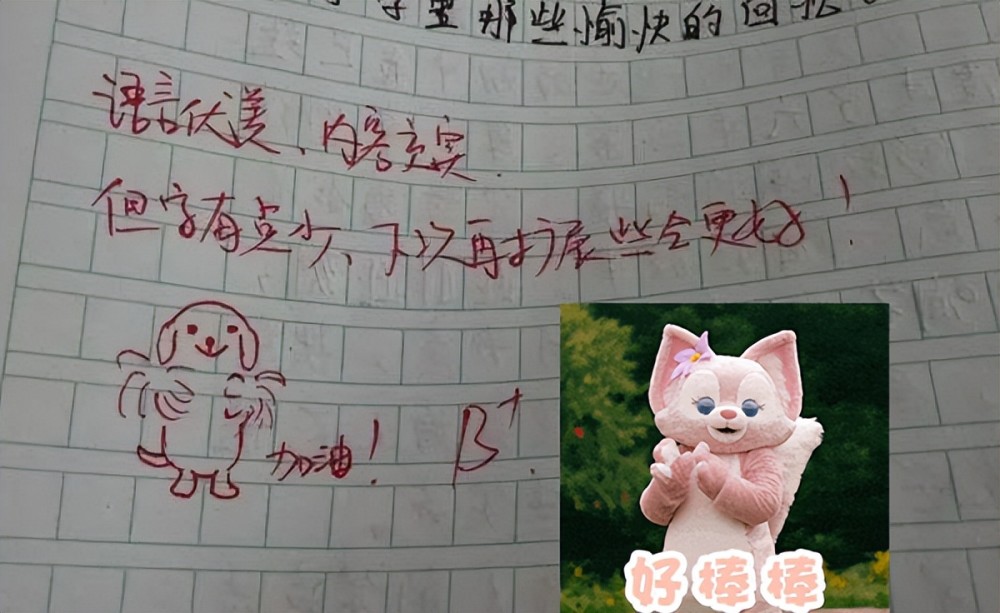 里那些愉快的回忆。
语言优美、内容充实.
但字有点少、下次再扩展些会更好！
加油！
B+.
好棒棒